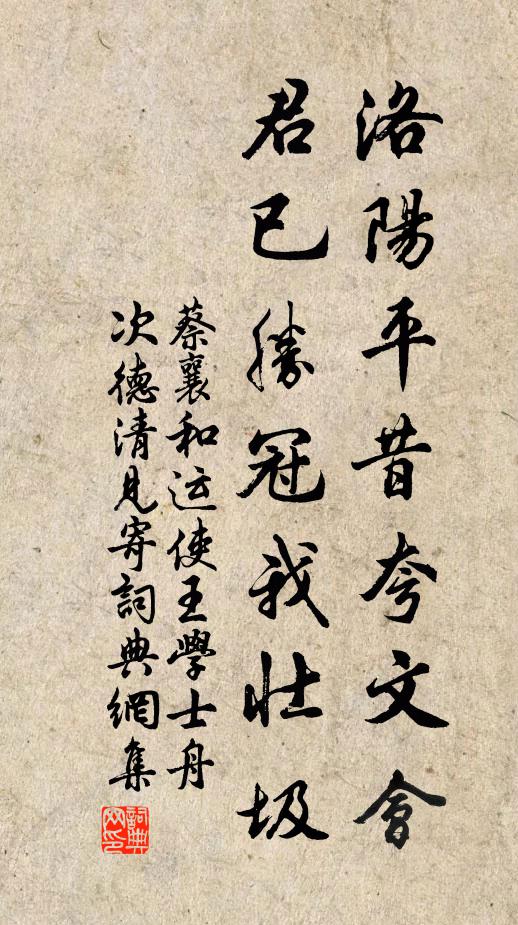 洛陽平昔夸文會
君已勝冠我壯圾
蔡襄和运使王學士舟
次德清見寄詞典網集
詞典
网印